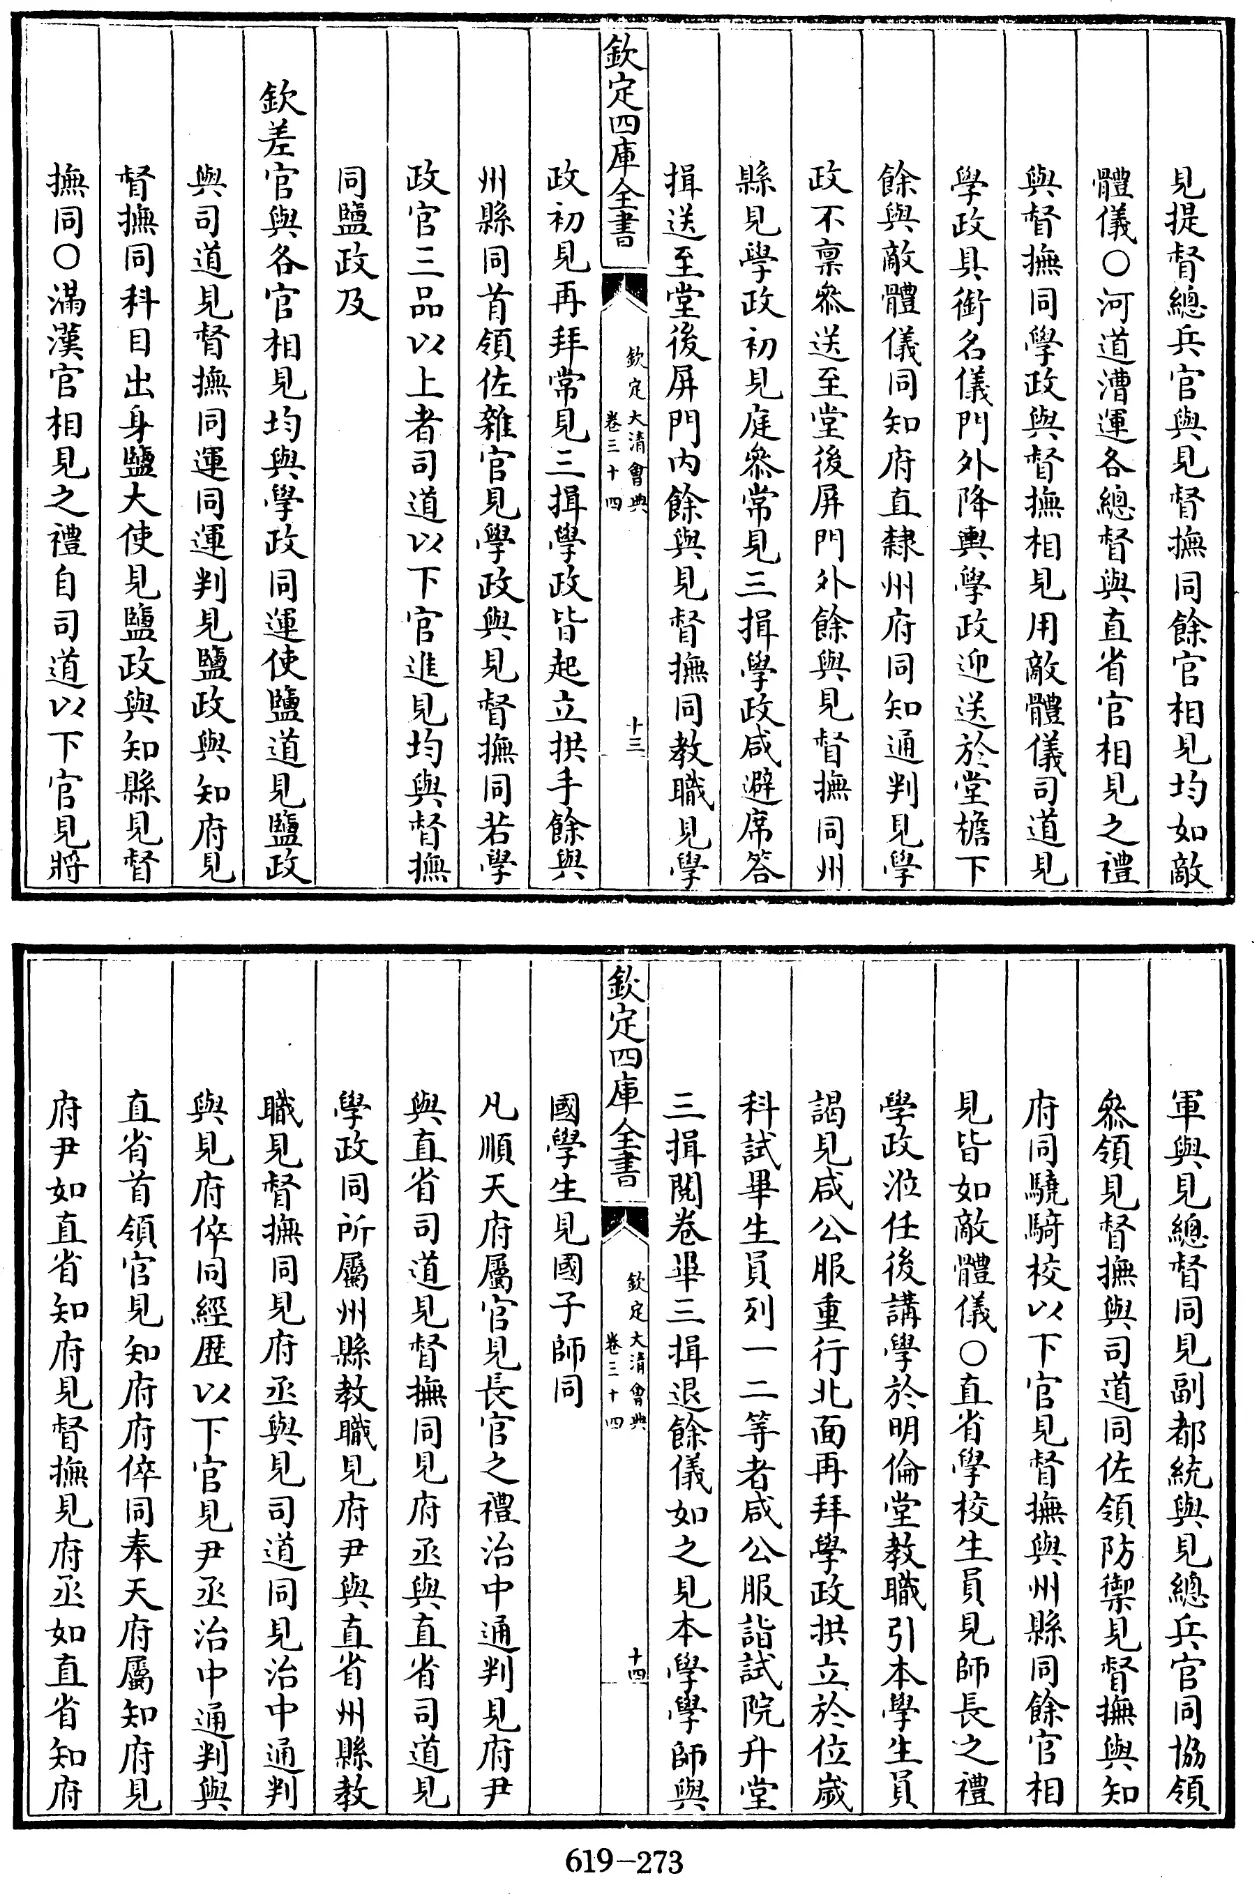 見提督總兵官與見督撫同餘官相見均如敵
體儀○河道漕運各總督與直省官相見之禮
與督撫同學政與督撫相見用敵體儀司道見
學政具銜名儀門外降輿學政迎送於堂檐下
餘與敵體儀同知府直隸州府同知通判見學
政不稟叅送至堂後屏門外餘與見督撫同州
縣見學政初見庭叅常見三揖學政咸避席答
揖送至堂後屏門内餘與見督撫同教職見學
欽定四庫全書
欽定大清會典
卷三十四
十三
政初見再拜常見三揖學政皆起立拱手餘與
州縣同首領佐雜官見學政與見督撫同若學
政官三品以上者司道以下官進見均與督撫
同鹽政及
欽差官與各官相見均與學政同運使鹽道見鹽政
與司道見督撫同運同運判見鹽政與知府見
督撫同科目出身鹽大使見鹽政與知縣見督
撫同○滿漢官相見之禮自司道以下官見將
軍與見總督同見副都統與見總兵官同協領
叅領見督撫與司道同佐領防禦見督撫與知
府同驍騎校以下官見督撫與州縣同餘官相
見皆如敵體儀○直省學校生員見師長之禮
學政涖任後講學於明倫堂教職引本學生員
謁見咸公服重行北面再拜學政拱立於位歲
科試畢生員列一二等者咸公服詣試院升堂
三揖閱卷畢三揖退餘儀如之見本學學師與
欽定四庫全書
欽定大清會典
卷三十四
十四
國學生見國子師同
凡順天府屬官見長官之禮治中通判見府尹
與直省司道見督撫同見府丞與直省司道見
學政同所屬州縣教職見府尹與直省州縣教
職見督撫同見府丞與見司道同見治中通判
與見府倅同經歴以下官見尹丞治中通判與
直省首領官見知府府倅同奉天府屬知府見
府尹如直省知府見督撫見府丞如直省知府
619-273